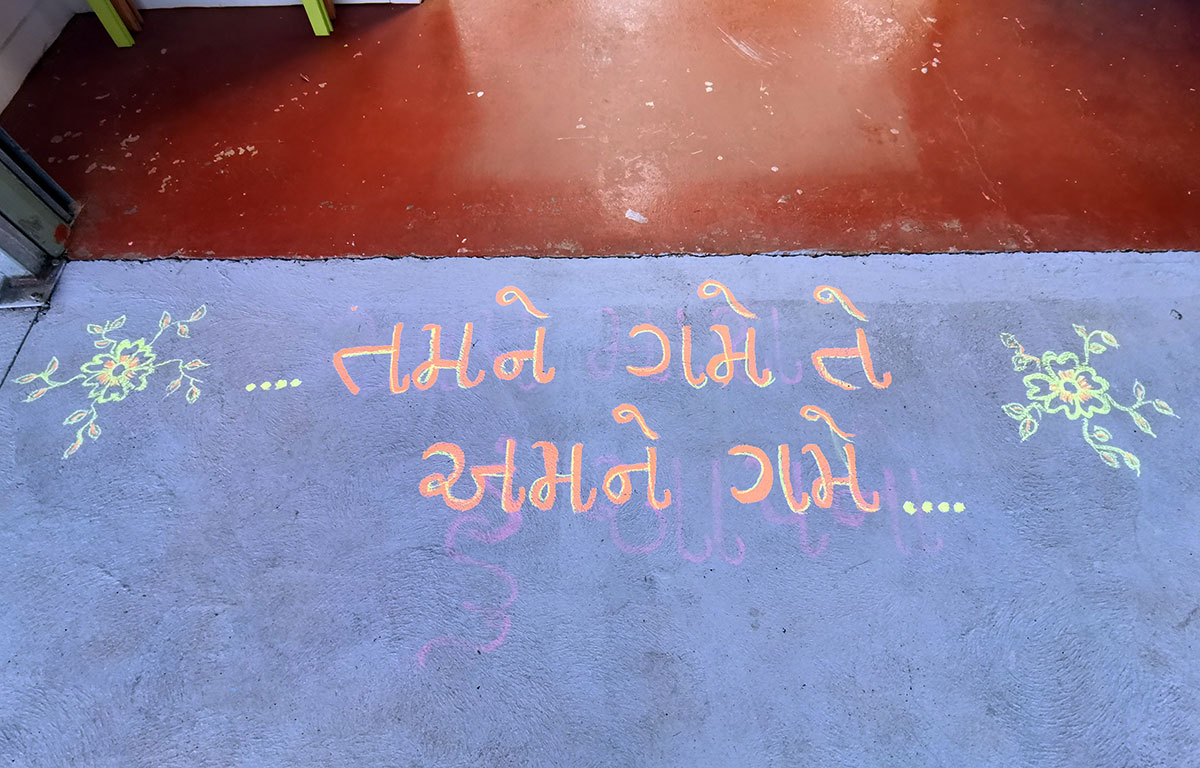 .... તમને ગમે તે
અમને ગમે ....